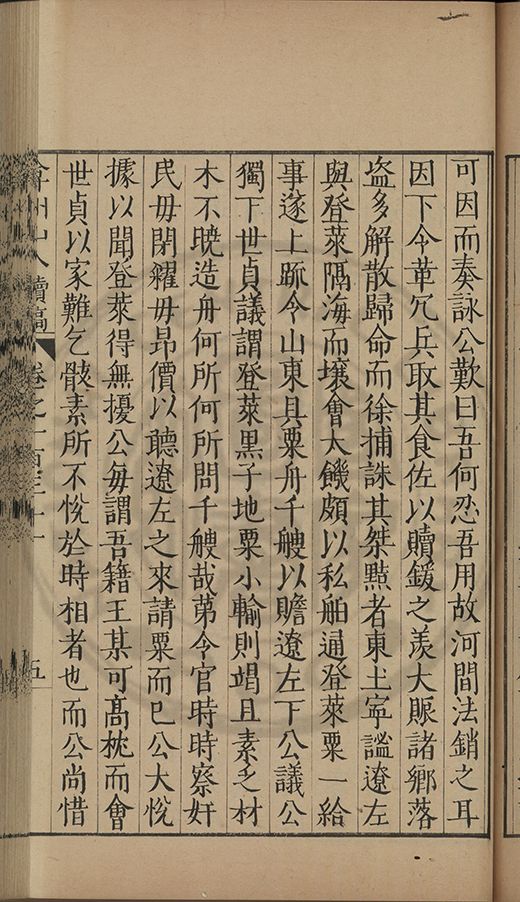 可因而奏詠公歎曰吾何忍吾用故河間法銷之耳
因下令革冗兵取其食佐以贖鍰之羨大賑諸鄉落
盗多解散歸命而徐捕誅其桀黠者東土寧謐遼左
與登萊隔海而壤會大饑頗以私舶通登萊粟一給
事遂上疏令山東具粟舟千艘以贍遼左下公議公
獨下世貞議謂登萊黒子地粟小輸則竭且素乏材
木不曉造舟何所何所問千艘哉苐令官時時察奸
民毋閉糴毋昂價以聽遼左之來請粟而已公大悅
據以聞登萊得無擾公每謂吾籍王某可髙枕而會
世貞以家難乞骸素所不悅於時相者也而公尚惜
弇州山人續稿 卷之一百三十一 五